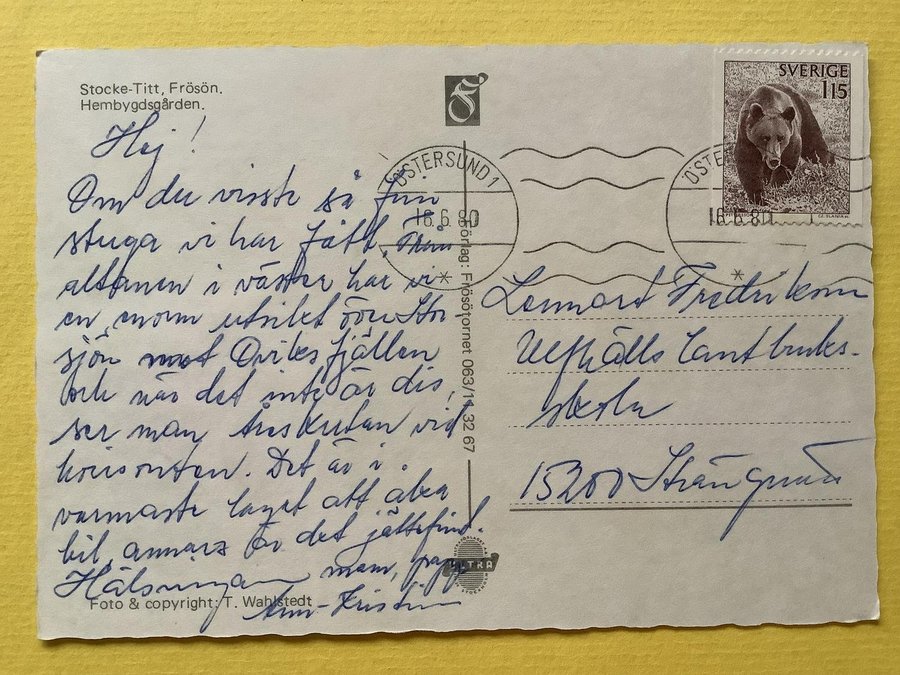 Stocke-Titt, Frösön.
Hembygdsgården.
Hej!
Om du visste så fin
stuga vi har fått. Från
altanen i väster har vi
en enorm utsikt över Stor
sjön mot Oviksfjällen
och när det inte är dis,
ser man Åreskutan vid
horisonten. Det är i
varmaste laget att åka
bil, annars är det jättefint.
Hälsningar mam, papp
Ann-Kristin
Foto & copyright: T. Wahlstedt
Förlag: Frösötornet 063/11 32 67
ULTRA
ÖSTERSUND 1
16.6.80
ÖSTE
16.6.80
SVERIGE
115
CZ. SLANIA SC
Lennart Fredriksson
Ulfhälls Lantbruks-
skola
15200 Strängnäs